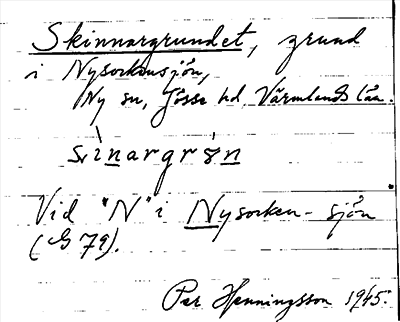 Skinnargrundet, grund
i Nysockensjön,
Ny sn, Jösse hd, Värmlands län.
sìnargrøn
Vid "N" i Nysocken-sjön
(G 79).
Per Henningsson 1945.